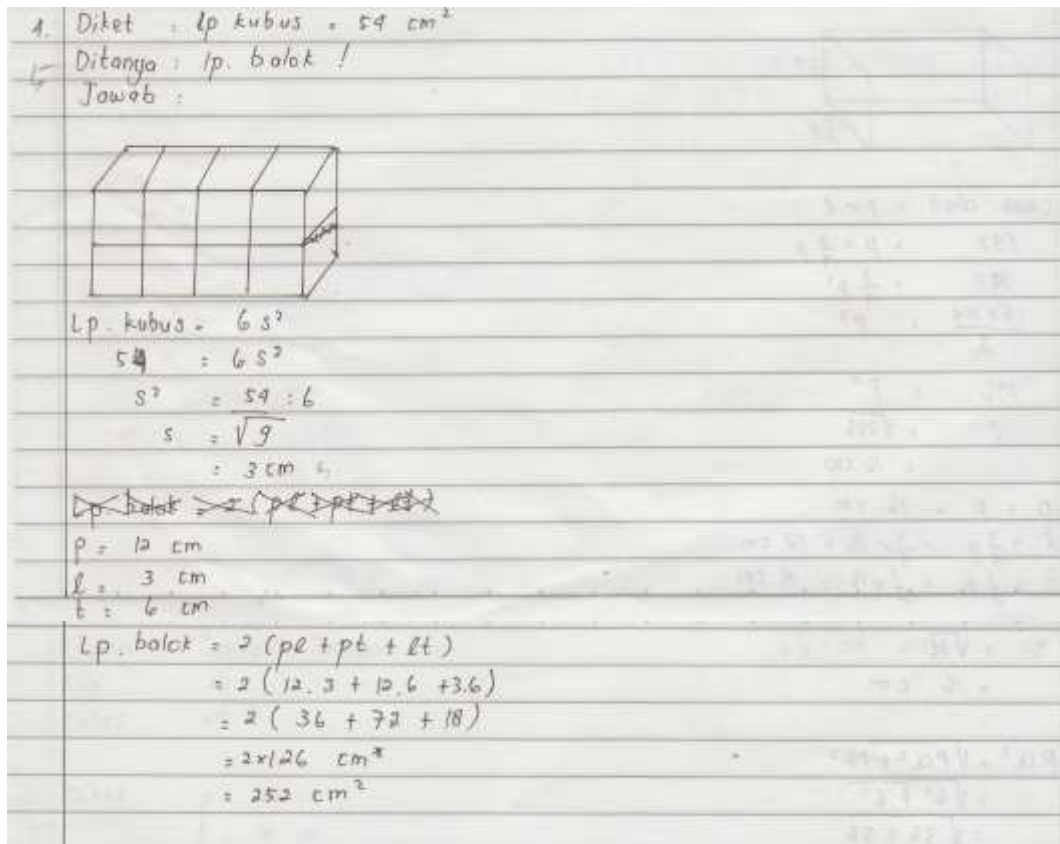 1. Diket : Lp kubus = 54 cm²
Ditanya : lp. balok !
Jawab :
Lp. kubus = 6 s²
54 = 6 s²
s² = 54 : 6
s = √9
= 3 cm
Lp balok = 2 (pl + pt + lt)
p = 12 cm
l = 3 cm
t = 6 cm
Lp. balok = 2 (pl + pt + lt)
= 2 ( 12.3 + 12.6 + 3.6)
= 2 ( 36 + 72 + 18)
= 2×126 cm²
= 252 cm²